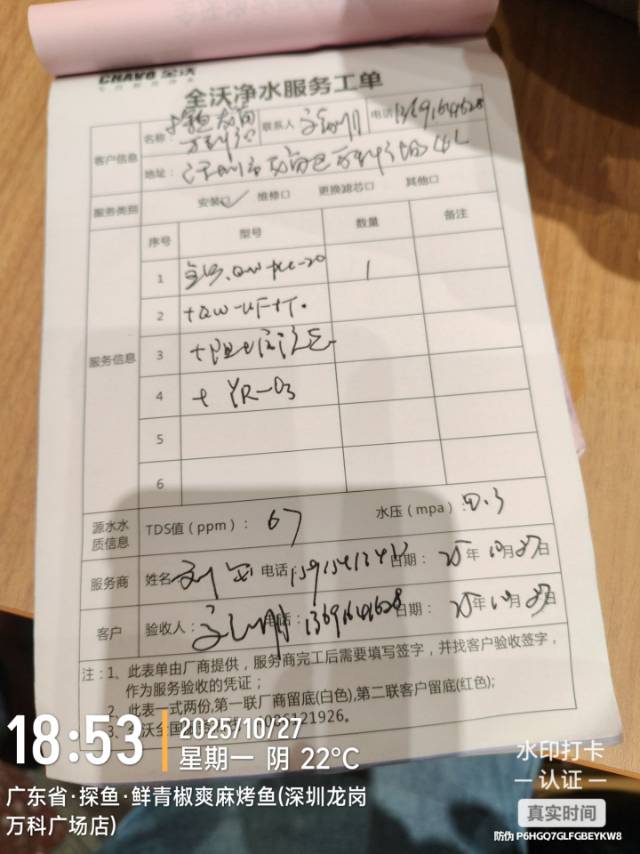 CHAVO 全沃
全沃净水服务工单
客户信息
名称：探鱼龙岗万科店 联系人 电话
地址：深圳市龙岗区万科广场L4L
服务类别 安装☑ 维修口 更换滤芯口 其他口
服务信息
序号 型号 数量 备注
1 全沃.QW-RCC-20 1
2 +QW-UF+T.
3 +阻垢
4 + YR-03
5
6
源水水质信息 TDS值（ppm）： 67 水压（mpa）:0.3
服务商 姓名 刘 电话 日期： 25年10月27日
客户 验收人： 电话：13691641628 日期： 25年10月27日
注：1、此表单由厂商提供，服务商完工后需要填写签字，并找客户验收签字，
作为服务验收的凭证；
2、此表一式两份,第一联厂商留底(白色),第二联客户留底(红色);
3、全沃全国
18:53 2025/10/27
星期一 阴 22°C
广东省·探鱼·鲜青椒爽麻烤鱼(深圳龙岗
万科广场店)
水印打卡
认证
真实时间
防伪 P6HGQ7GLFGBEYKW8